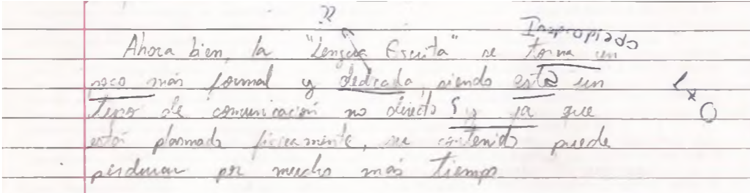 ??
Inapropiado
Ahora bien, la "Lengua Escrita" se torna un
poco más formal y dedicada, siendo esta un
tipo de comunicación no directa y ya que
está plasmado físicamente, su contenido puede
perdurar por mucho más tiempo